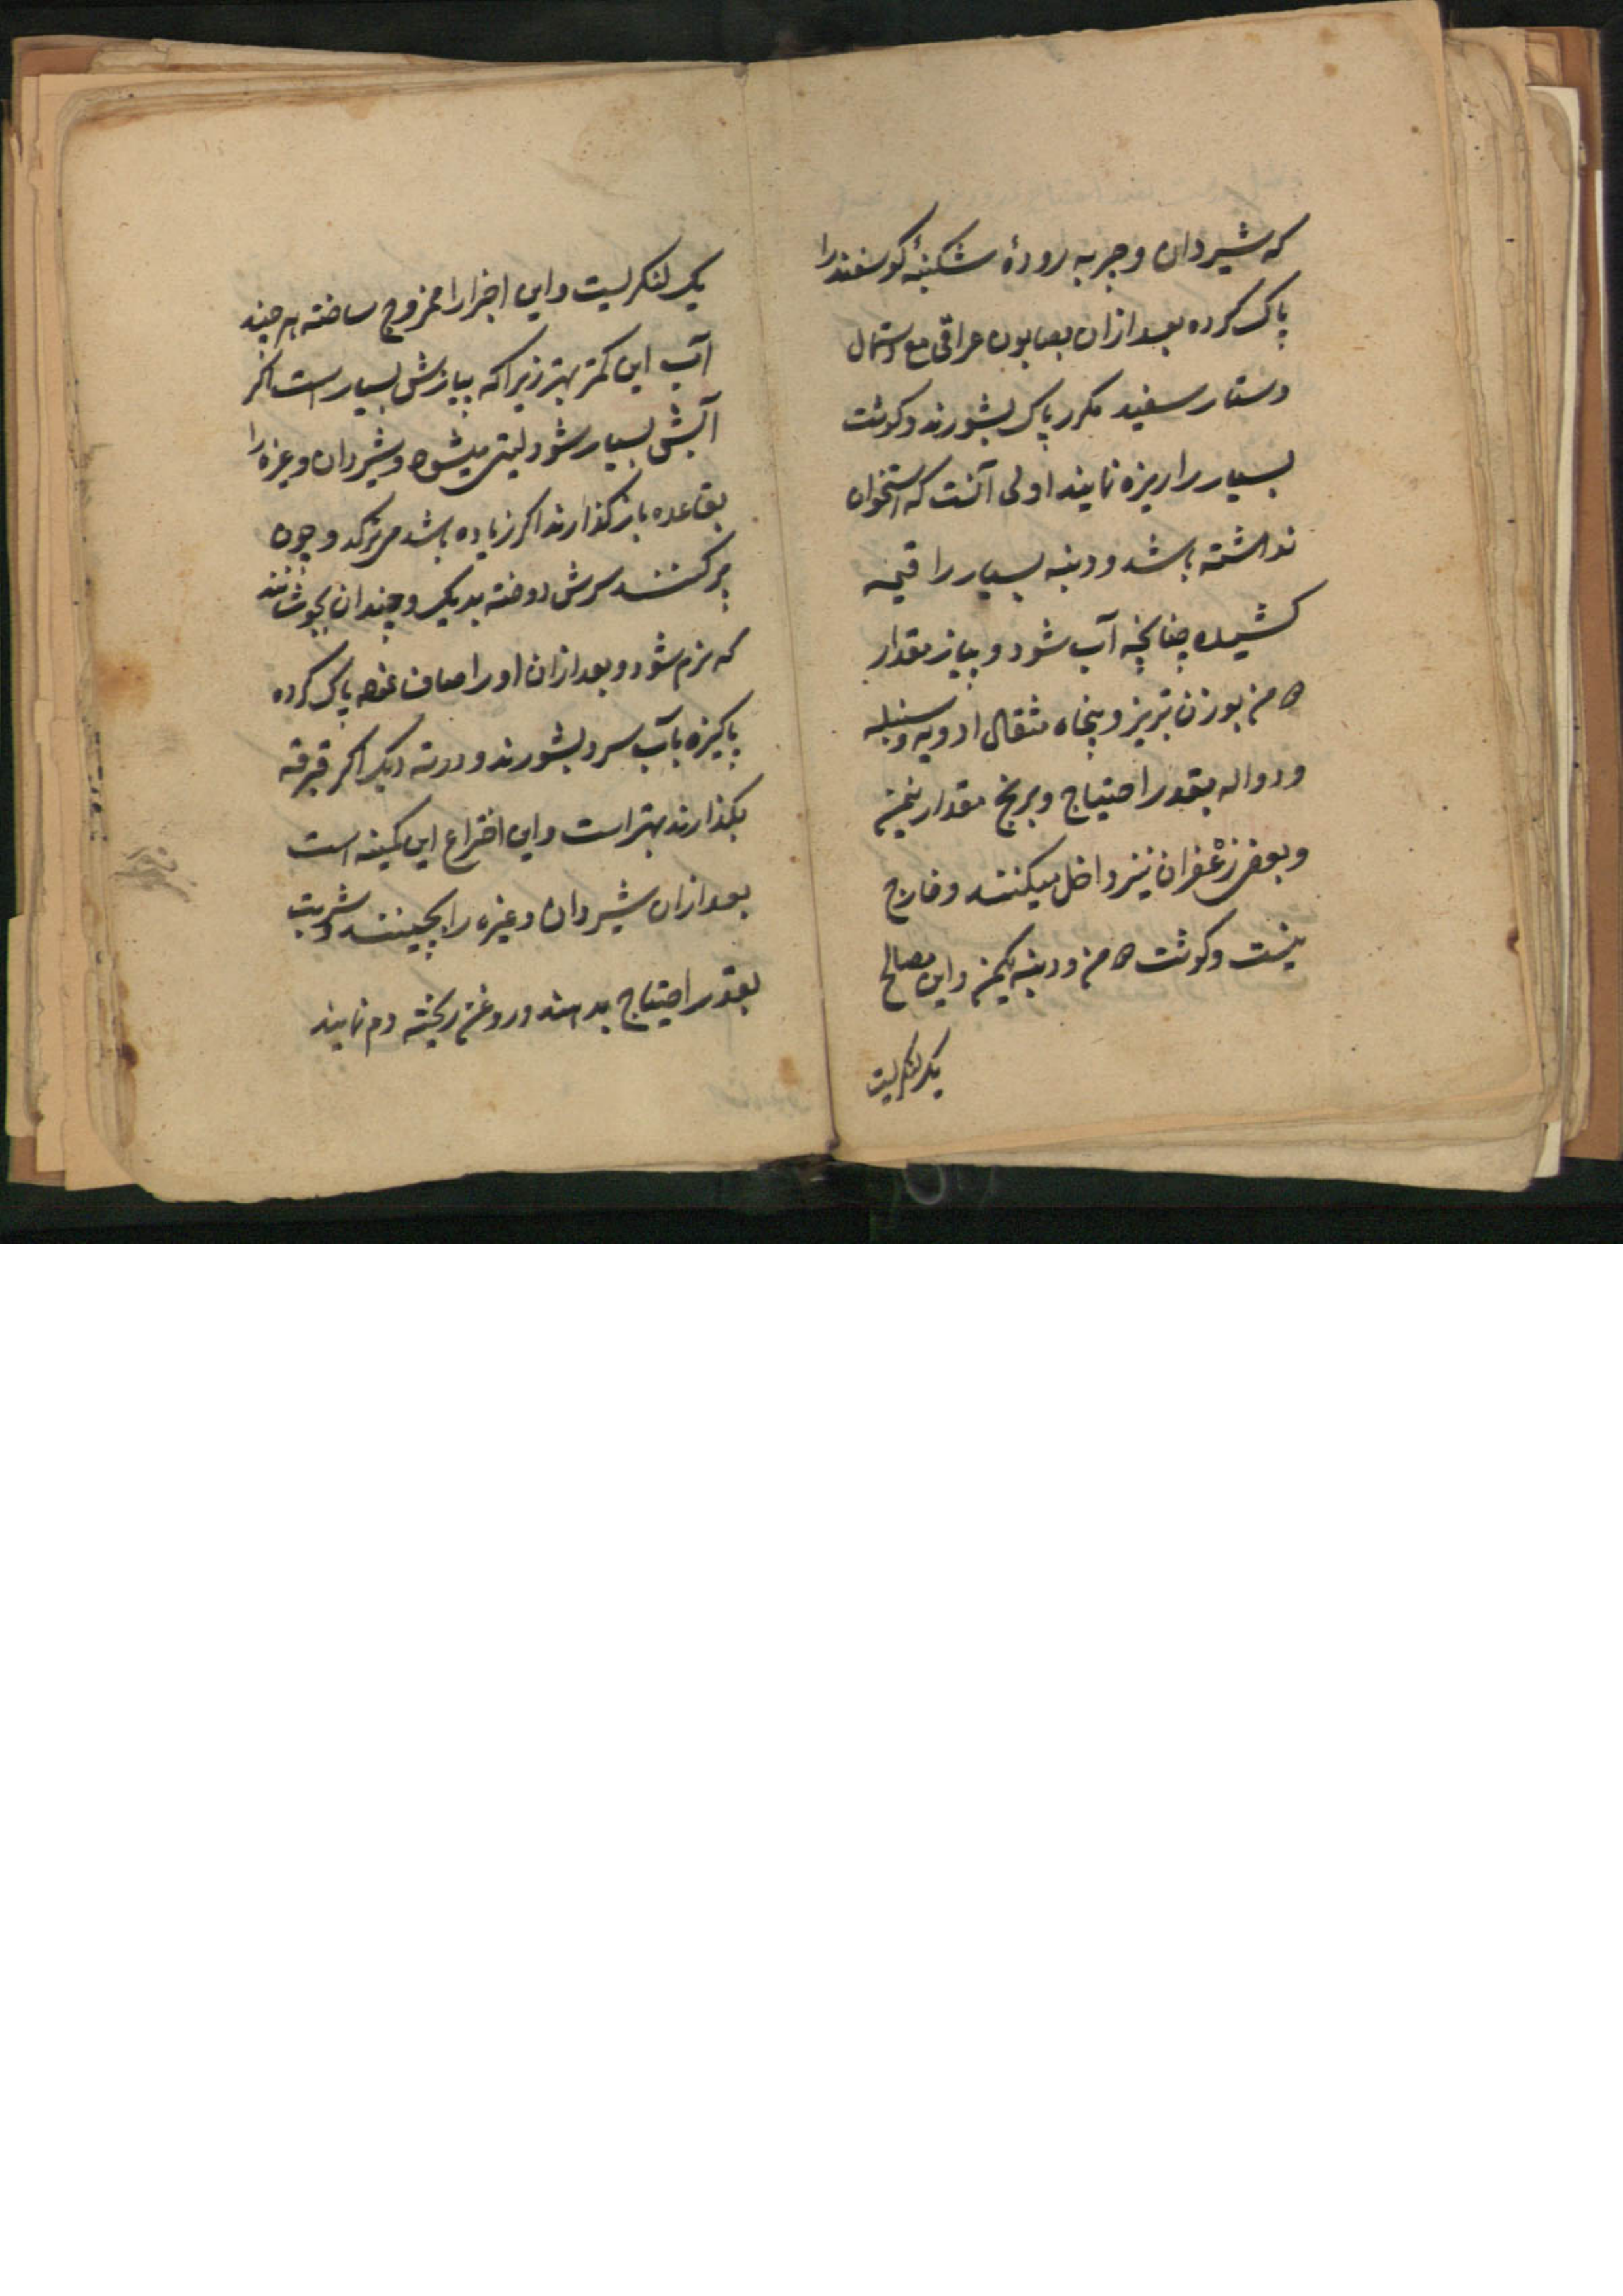 که شیردان و چربه رودهٔ شکنبهٔ کوسفند را
پاک کرده بعد ازان بصابون عراقی مع دستمال
دستار سفید مکرر پاک بشورند و کوشت
بسیار را ریزه نمایند اولی آنست که استخوان
نداشته باشد و دنبه بسیار را قیمه
کشیده چنانچه آب شود و پیاز مقدار
۵ من بوزن تبریز و پنجاه مثقال ادویه و سنبله
و دواله بقدر احتیاج و برنج مقدار نیمن
و بعضی زعفران نیز داخل میکنند و خارج
نیست و کوشت ۵ من و دنبه یکمن و این مصالح
یک لنکریست
یک لنکریست و این اجزا را ممزوج ساخته هر چند
آب این کمتر بهتر زیرا که پیازش بسیار است اکر
آبش بسیار شود لیتی میشود و شیردان و غیره را
بقاعده باز کذارند اکر زیاده باشد میترکد و چون
پر کنند سرش دوخته بدیک و چندان بجوشانند
که نرم شود و بعد ازان اورا صاف نموده پاک کرده
پاکیزه بآب سرد بشورند و در ته دیک اکر قبرقه
بکذارند بهتر است و این اختراع این کمینه است
بعد ازان شیردان و غیره را بچینند و شربت
بقدر احتیاج بدهند و روغن ریخته دم نمایند